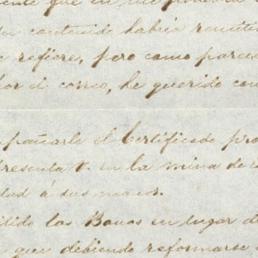 ente que en mi poder
su contenido había remiti
refiere, pero como parece
por el correo, he querido con
pañarle el Certificado pro
presenta V. en la mina de
dad á sus
tido los Bonos en lugar d
que debiendo reformarse